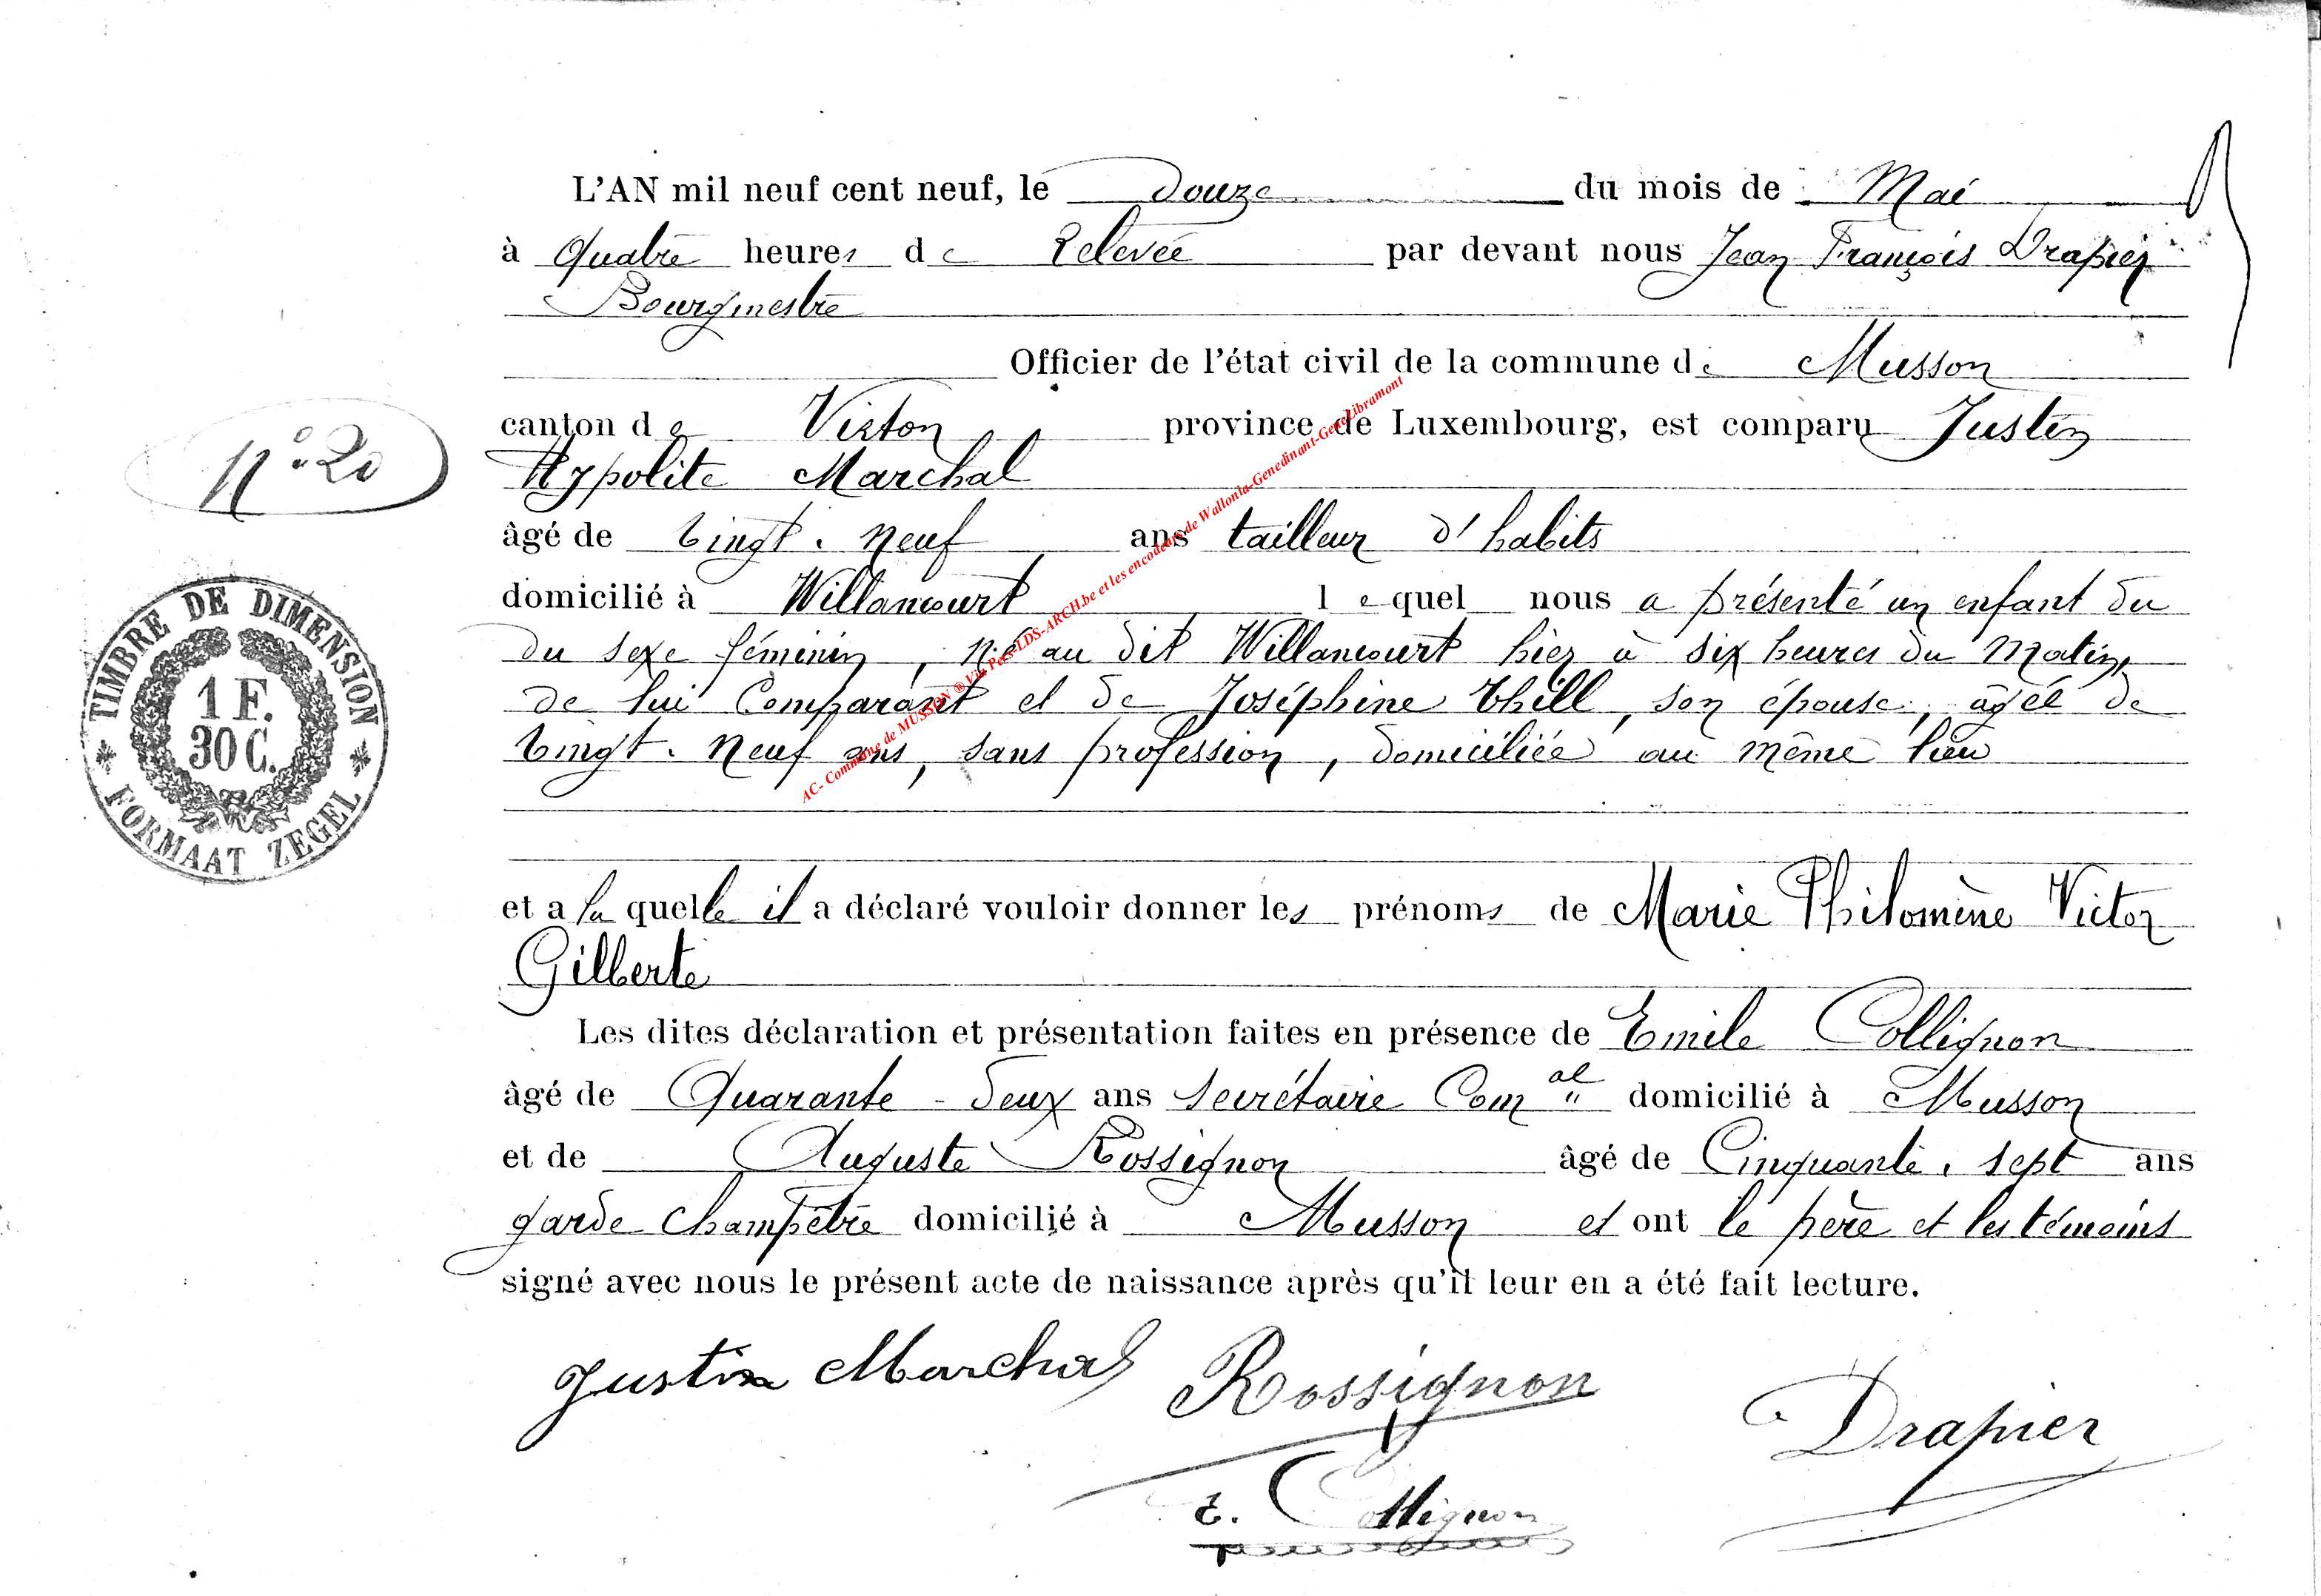 L'AN mil neuf cent neuf, le douze du mois de Mai
à Quatre heures de Relevée par devant nous Jean François Drapier
Bourgmestre
Officier de l'état civil de la commune de Musson
canton de Virton province de Luxembourg, est comparu Justin
Hypolite Marchal
N° 20
âgé de Vingt-neuf ans tailleur d'habits
domicilié à Willancourt lequel nous a présenté un enfant du
du sexe féminin, né au dit Willancourt hier à six heures du matin,
de lui Comparant et de Joséphine Thill, son épouse, agée de
Vingt-neuf ans, sans profession, domiciliée au même lieu
TIMBRE DE DIMENSION
1 F.
30 C.
FORMAAT ZEGEL
et a la quelle il a déclaré vouloir donner les prénoms de Marie Philomène Victor
Gilberte
Les dites déclaration et présentation faites en présence de Emile Collignon
âgé de Quarante-deux ans secrétaire Comal domicilié à Musson
et de Auguste Rossignon âgé de Cinquante-sept ans
garde champêtre domicilié à Musson et ont le père et les témoins
signé avec nous le présent acte de naissance après qu'il leur en a été fait lecture.
Justin Marchal Rossignon
Drapier
E. Collignon
AC- Commune de MUSSON ® Vit. Pers-LDS-ARCH.be et les encodeurs de Wallonia-Genedinant-GeneLibramont